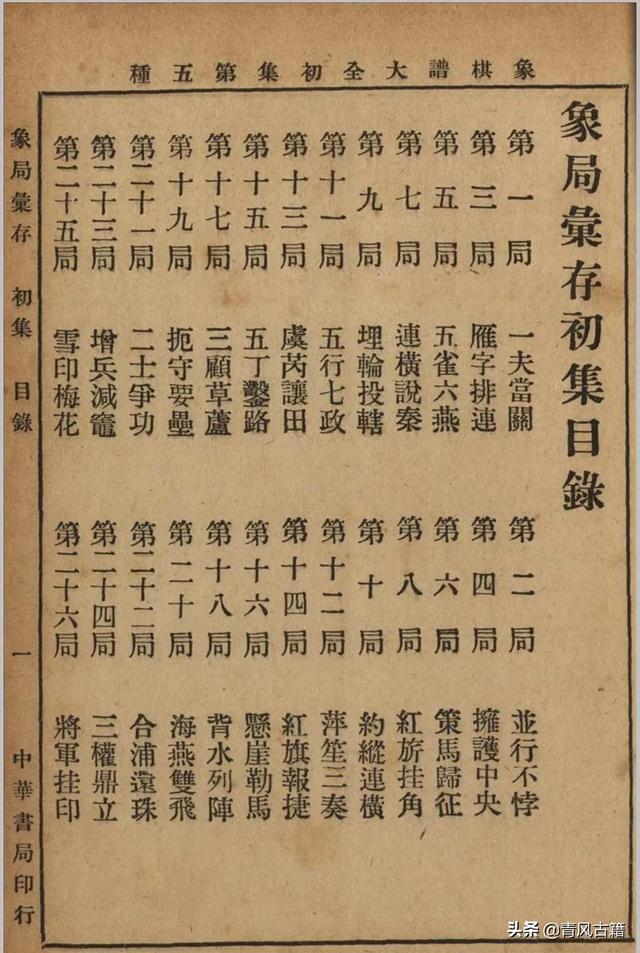 象棋譜大全初集第五種
象局彙存初集目錄
第一局 一夫當關 第二局 並行不悖
第三局 雁字排連 第四局 擁護中央
第五局 五雀六燕 第六局 策馬歸征
第七局 連橫說秦 第八局 紅旂挂角
第九局 埋輪投轄 第十局 約縱連橫
第十一局 五行七政 第十二局 萍笙三奏
第十三局 虞芮讓田 第十四局 紅旗報捷
第十五局 五丁鑿路 第十六局 懸崖勒馬
第十七局 三顧草蘆 第十八局 背水列陣
第十九局 扼守要壘 第二十局 海燕雙飛
第二十一局 二士爭功 第二十二局 合浦還珠
第二十三局 增兵減竈 第二十四局 三權鼎立
第二十五局 雪印梅花 第二十六局 將軍挂印
象局彙存 初集 目錄 一 中華書局印行
头条 @青风古籍